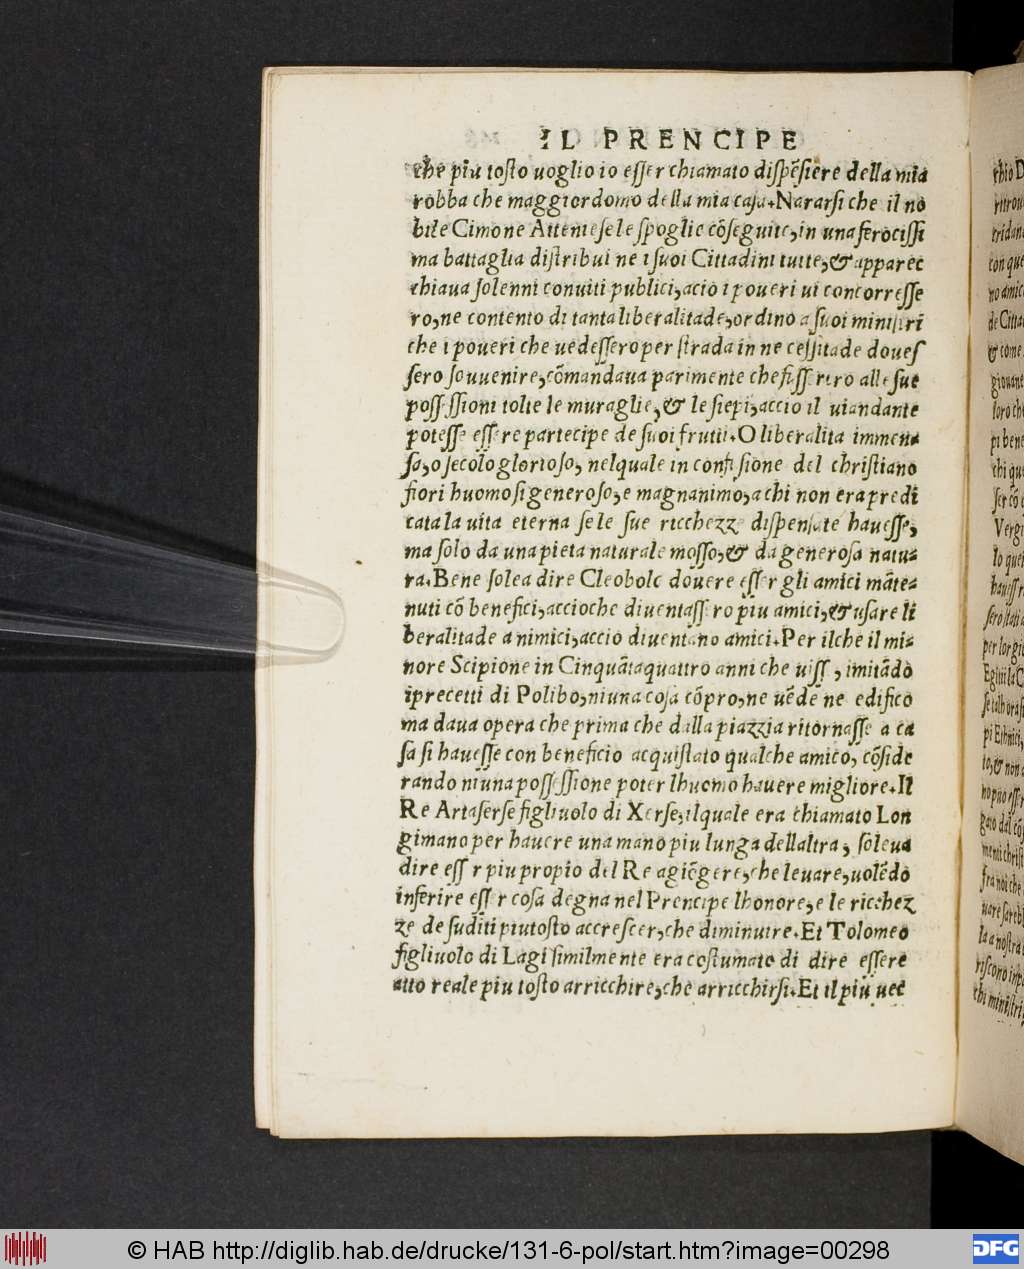 IL PRENCIPE
che piu tosto uoglio io esser chiamato dispẽsiere della mia
robba che maggiordomo della mia casa. Nararsi che il no
bile Cimone Atteniese le spoglie cõseguite, in una ferocissi
ma battaglia distribui ne i suoi Cittadini tutte, & apparec
chiaua solenni conuiti publici, acio i poueri ui concorresse
ro, ne contento di tanta liberalitade, ordino a suoi ministri
che i poueri che uedessero per strada in necessitade doues
sero souuenire, cõmandaua parimente che fussero alle sue
possessioni tolte le muraglie, & le siepi, accio il uiandante
potesse essere partecipe de suoi frutti. O liberalita immen=
sa, o secolo glorioso, nelquale in confusione del christiano
fiori huomo si generoso, e magnanimo, a chi non era predi
cata la uita eterna se le sue ricchezze dispensate hauesse,
ma solo da una pieta naturale mosso, & da generosa natu=
ra. Bene solea dire Cleobolo douere esser gli amici mãte=
nuti cõ benefici, accioche diuentassero piu amici, & usare li
beralitade a nimici, accio diuentano amici. Per ilche il mi=
nore Scipione in Cinquãtaquattro anni che uisse, imitãdo
i precetti di Polibo, niuna cosa cõpro, ne uẽde ne edifico
ma daua opera che prima che dalla piazzia ritornasse a ca
sa si hauesse con beneficio acquistato qualche amico, cõside
rando niuna possessione poter lhuomo hauere migliore. Il
Re Artaserse figliuolo di Xerse, ilquale era chiamato Lon
gimano per hauere una mano piu lunga dellaltra, soleua
dire esser piu propio del Re agiẽgere, che leuare, uolẽdo
inferire esser cosa degna nel Prencipe lhonore, e le ricchez
ze de suditi piutosto accrescer, che diminuire. Et Tolomeo
figliuolo di Lagi similmente era costumato di dire essere
atto reale piu tosto arricchire, che arricchirsi. Et il piu uec
© HAB http://diglib.hab.de/drucke/131-6-pol/start.htm?image=00298
DFG